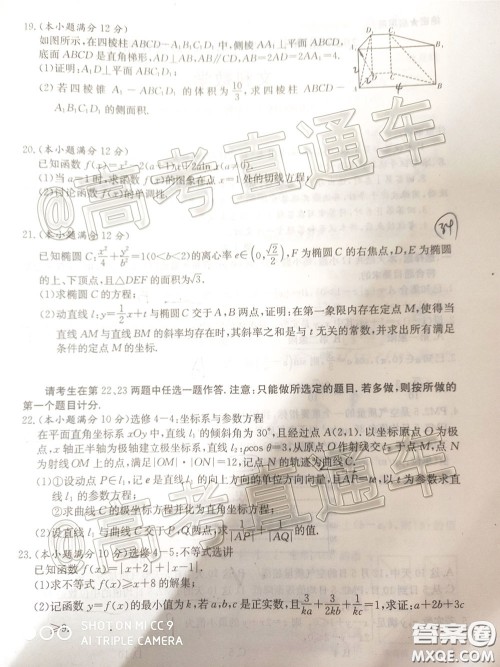 19.(本小题满分12分)
如图所示,在四棱柱ABCD-A₁B₁C₁D₁中,侧棱AA₁⊥平面ABCD,
底面ABCD是直角梯形,AD⊥AB,AB∥CD,AB=2AD=2AA₁=4.
(1)证明:A₁D⊥平面ABC₁D₁;
(2)若四棱锥A₁-ABC₁D₁的体积为10/3,求四棱柱ABCD-
A₁B₁C₁D₁的侧面积.
20.(本小题满分12分)
已知函数f(x)=x²-2(a
(1)当a=1时,求函数f(x)的图象在点x=1处的切线方程;
(2)讨论函数f(x)的单调性.
21.(本小题满分12分)
已知椭圆C:x²/4+y²/b²=1(0<b<2)的离心率e∈(0,√2/2),F为椭圆C的右焦点,D,E为椭圆
的上、下顶点,且△DEF的面积为√3.
(1)求椭圆C的方程;
(2)动直线l:y=1/2x+t与椭圆C交于A,B两点,证明:在第一象限内存在定点M,使得当
直线AM与直线BM的斜率均存在时,其斜率之和是与t无关的常数,并求出所有满足
条件的定点M的坐标.
请考生在第22,23两题中任选一题作答.注意:只能做所选定的题目.若多做,则按所做的
第一个题目计分.
22.(本小题满分10分)选修4-4:坐标系与参数方程
在平面直角坐标系xOy中,直线l₁的倾斜角为30°,且经过点A(2,1).以坐标原点O为极
点,x轴正半轴为极轴建立极坐标系,直线l₂:ρcosθ=3,从原点O作射线交l₂于点M,点N
为射线OM上的点,满足|OM|·|ON|=12,记点N的轨迹为曲线C.
(1)①设动点P∈l₁,记e是直线l₁的向上方向的单位方向向量,且AP=te,以t为参数求直
线l₁的参数方程;
②求曲线C的极坐标方程并化为直角坐标方程;
(2)设直线l₁与曲线C交于P,Q两点,求1/|AP|+1/|AQ|的值.
23.(本小题满分10分)选修4-5:不等式选讲
已知函数f(x)=|x+2|+|x-3|.
(1)求不等式f(x)≥x+8的解集;
(2)记函数y=f(x)的最小值为k,若a,b,c是正实数,且3/ka+3/2kb+1/kc=1,求证:a+2b+3c
≥9.
@高考直通车
@高考直通车
SHOT ON MI CC9
AI TRIPLE CAMERA
答案圈
MXQE.COM